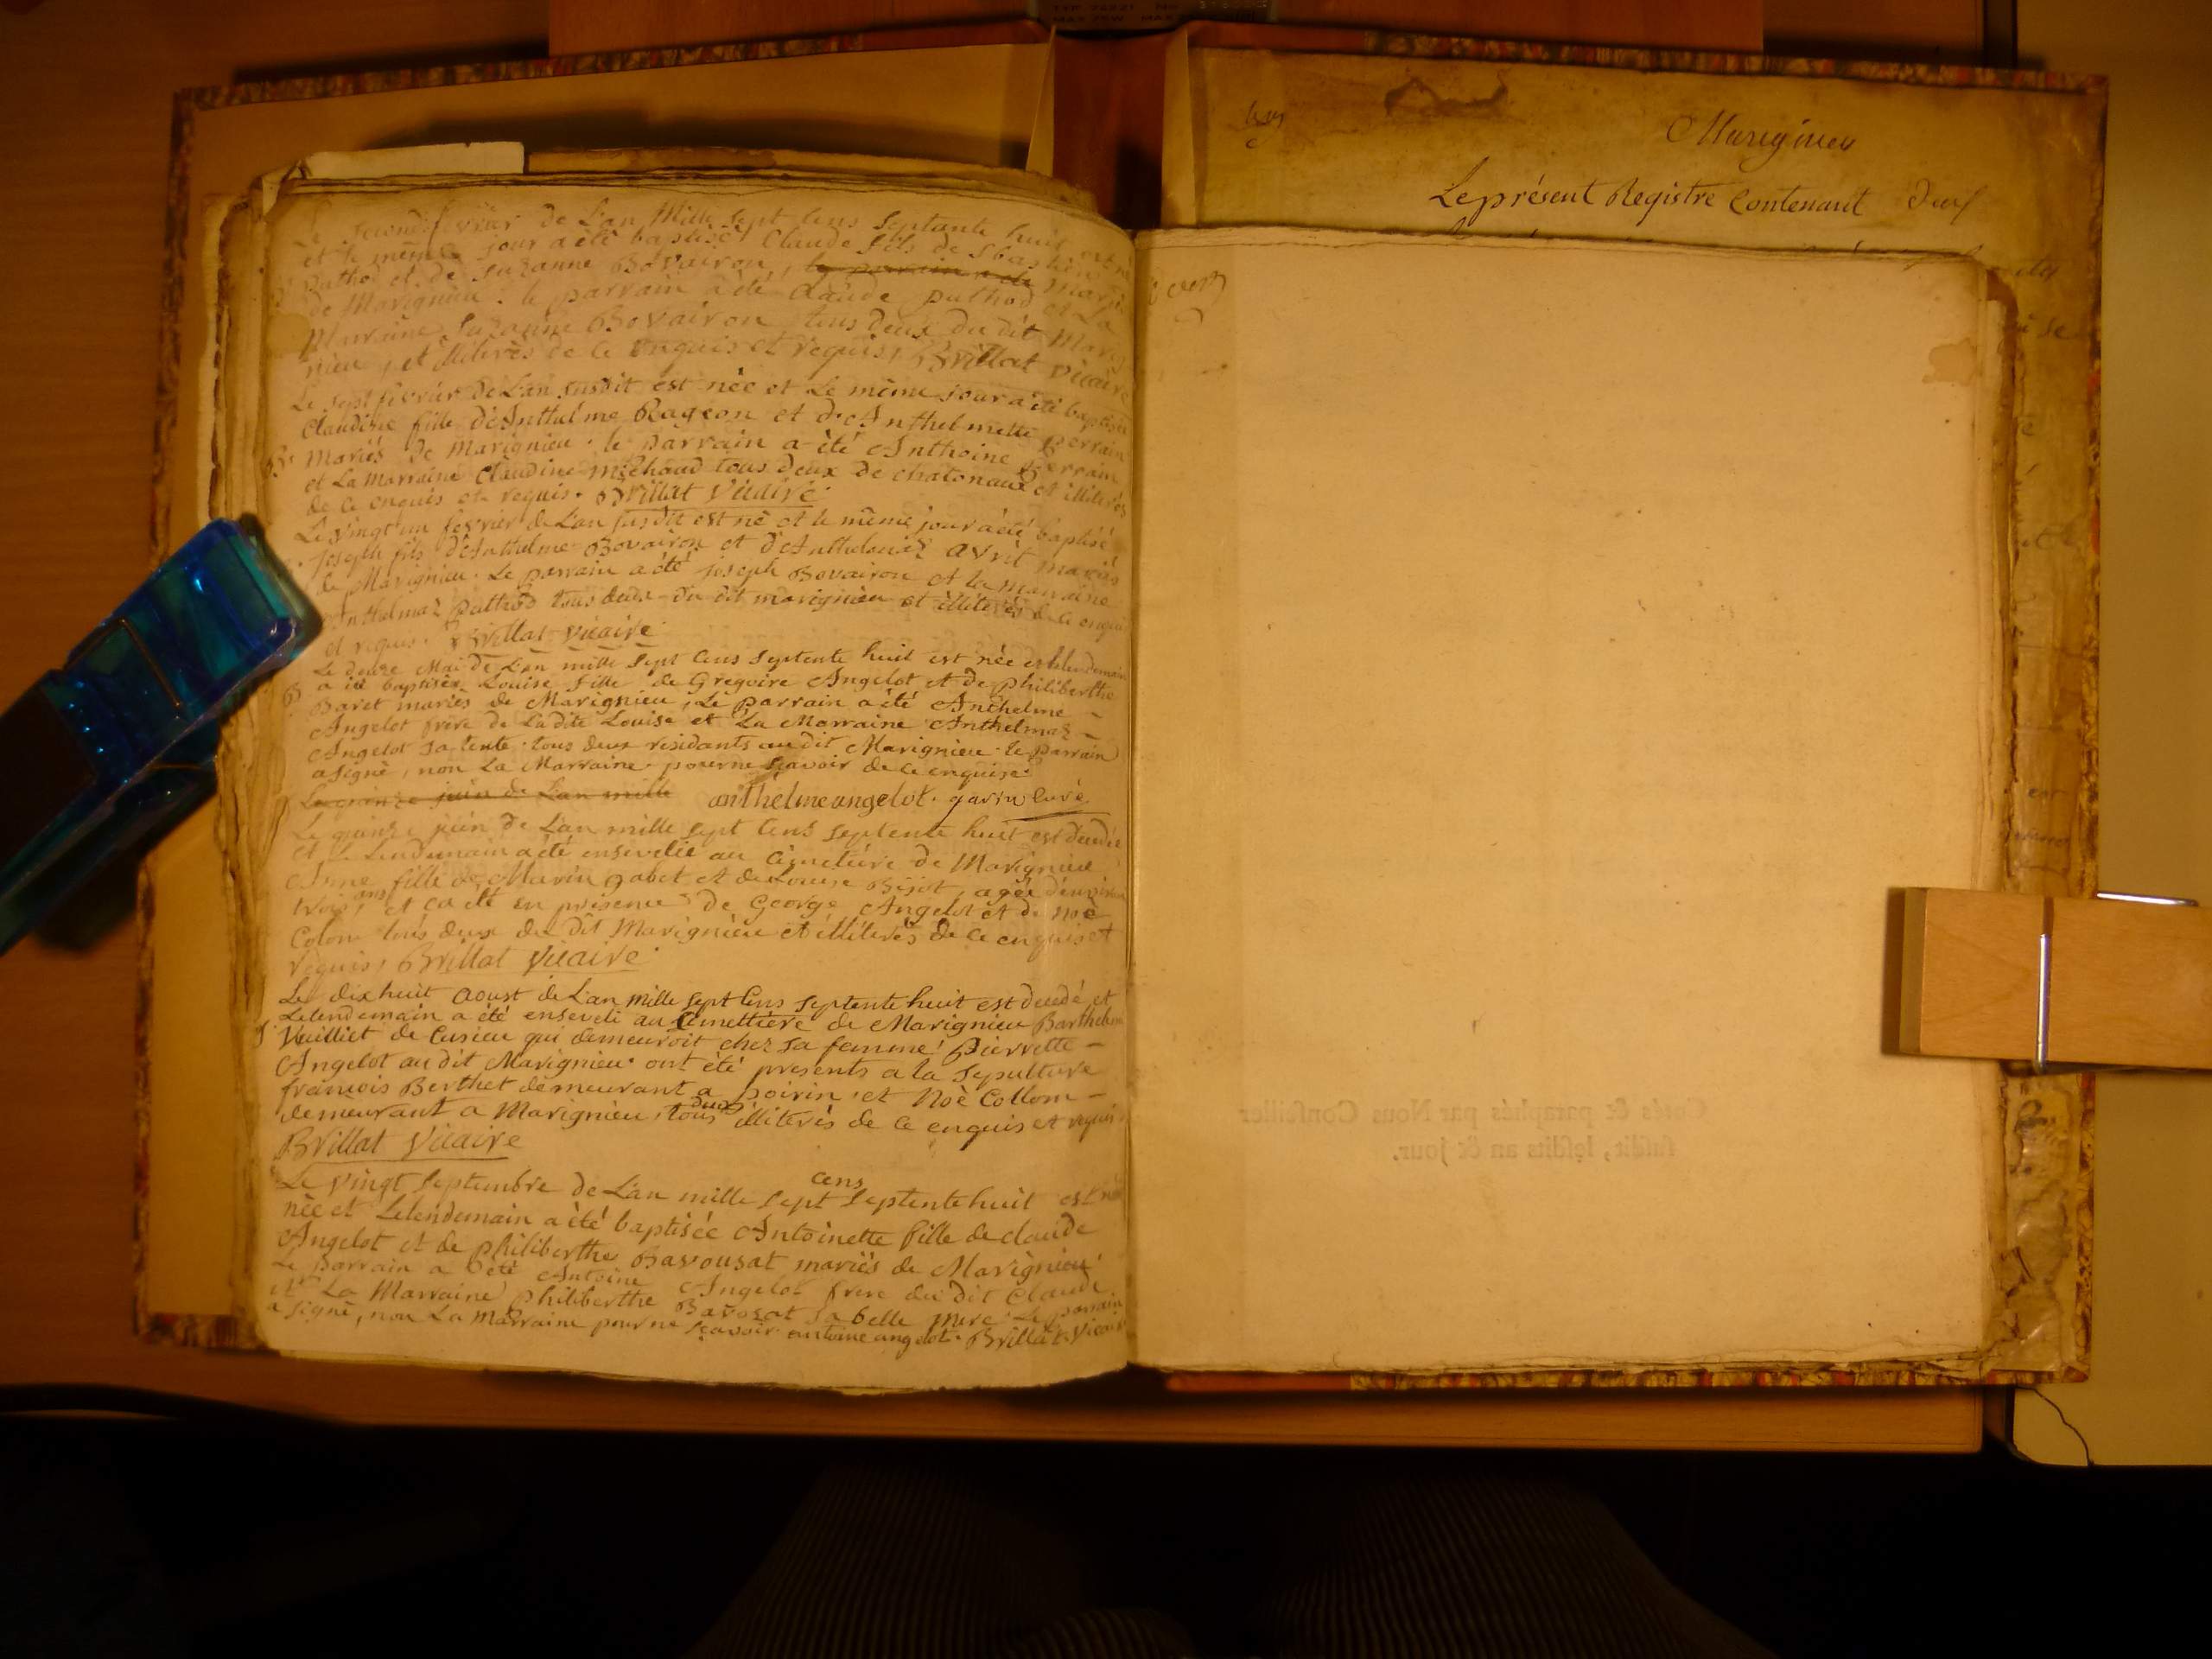 Le second fevrier de L'an Mille sept Cens septante huit est né
et le même jour a été baptisé Claude fils de Sbastien
B. Pathod et de Suzanne Bovairon, le parrain a été mariés
de Marignieu. le parrain a été Claude pathod et La
Marraine Suzanne Bovairon tous deux du dit Marig
nieu, et illiterès de ce enquis et requis, Brillat vicaire
Le sept fevrier de L'an susdit est née et Le même jour a été baptisée
Claudine fille d'Anthelme Rageon et d'Anthelmette perrain
B. Mariés de Marignieu. le parrain a été Anthoine perrain
et La Marraine Claudine Michaud tous deux de chatonaux et illiterés
de ce enquis et requis. Brillat Vicaire.
Le vingt un fevrier de L'an susdit est né et le même jour a été baptisé
Joseph fils d'Anthelme Bovairon et d'Anthelmaz avrit mariés
de Marignieu. Le parrain a été joseph Bovairon et la marraine
Anthelmaz pathod tous deux du dit marignieu et illiterés de ce enquis
et requis. Brillat vicaire
Le douze Mai de L'an mille sept Cens septente huit est née et le lendemain
B a été baptisée Louise fille de Gregoire Angelot et de philiberthe
Baret mariés de Marignieu, Le parrain a été Anthelme
Angelot frere de Ladite Louise et La Marraine Anthelmaz
Angelot sa tente. tous deux residants au dit Marignieu. le parrain
a signé, non La Marraine pour ne sçavoir de ce enquise.
Le quinze juin de L'an mille anthelme angelot. garin Curé
Le quinze juin de L'an mille sept Cens septente huit est decedée
et le Lendemain a été ensevelie au Cimetiére de Marignieu
Anne fille de Marin gabet et de Louise Bijot, agée d'environ
trois ans, et ca été en presence de George Angelot et de Noè
Colon tous deux du dit Marignieu et illiterés de ce enquis et
requis, Brillat Vicaire.
Le dix huit Aoust de L'an mille sept Cens septente huit est decedé et
Lelendemain a été enseveli au Cemettiere de Marignieu Barthelm
S Vuilliet de Cusieu qui demeuroit chez sa femme Pierrette
Angelot au dit Marignieu. ont été presents a la sepulture
francois Berthet demeurant a poirin, et Noè Collom
demeurant a Marignieu, tous deux illiterés de ce enquis et requis
Brillat Vicaire
Le vingt Septembre de L'an mille sept cens septente huit est
née et Lelendemain a été baptisée Antoinette fille de claude
Angelot et de philiberthe Bavousat mariés de Marignieu
Le parrain a été Antoine Angelot frere du dit Claude
et La Marraine philiberthe Bavosat sa belle mere. Le parrain
a signé, non La Marraine pour ne sçavoir. antoine angelot. Brillat. Vicaire
Marignieu
Le présent Registre Contenant deux
Cotés & paraphés par Nous Conseiller
susdit, lesdits an & jour.